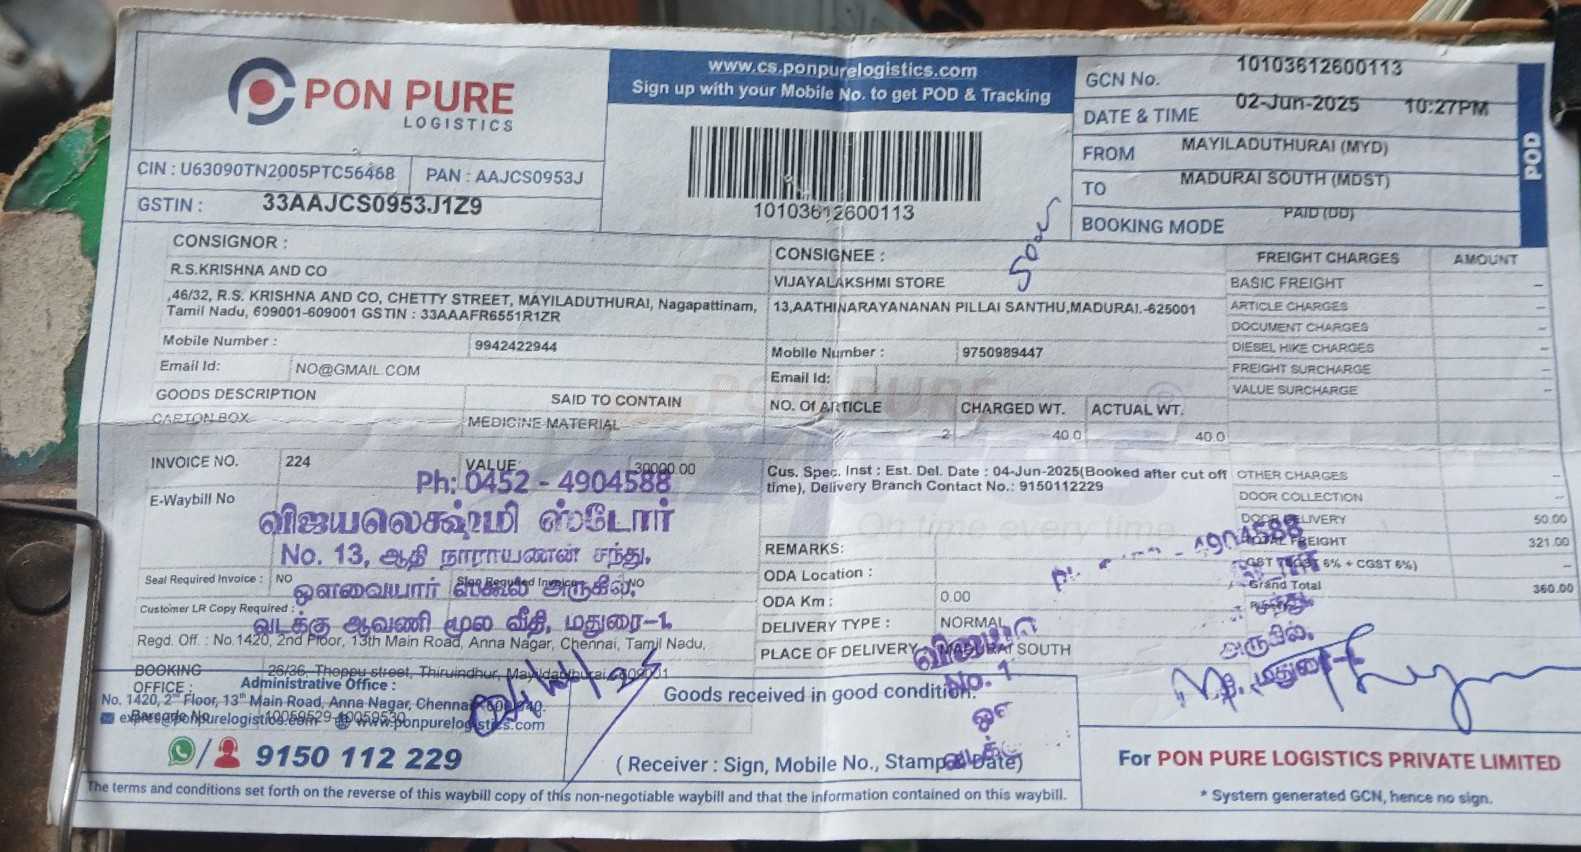 PON PURE
LOGISTICS
CIN : U63090TN2005PTC56468
PAN : AAJCS0953J
GSTIN : 33AAJCS0953J1Z9
www.cs.ponpurelogistics.com
Sign up with your Mobile No. to get POD & Tracking
10103612600113
GCN No. 10103612600113
DATE & TIME 02-Jun-2025 10:27PM
FROM MAYILADUTHURAI (MYD)
TO MADURAI SOUTH (MDST)
BOOKING MODE PAID (DD)
POD
CONSIGNOR :
R.S.KRISHNA AND CO
,46/32, R.S. KRISHNA AND CO, CHETTY STREET, MAYILADUTHURAI, Nagapattinam,
Tamil Nadu, 609001-609001 GSTIN : 33AAAFR6551R1ZR
Mobile Number : 9942422944
Email Id: NO@GMAIL.COM
GOODS DESCRIPTION SAID TO CONTAIN
CARTON BOX MEDICINE MATERIAL
INVOICE NO. 224 VALUE 30000.00
E-Waybill No
Ph: 0452 - 4904588
விஜயலெக்ஷ்மி ஸ்டோர்
No. 13, ஆதி நாராயணன் சந்து,
ஒளவையார் ஸ்கூல் அருகில்,
வடக்கு ஆவணி மூல வீதி, மதுரை-1.
Seal Required Invoice : NO Sign Required Invoice NO
Customer LR Copy Required :
Regd. Off. : No.1420, 2nd Floor, 13th Main Road, Anna Nagar, Chennai, Tamil Nadu,
BOOKING OFFICE : 26/36, Thoppu street, Thiruindhur, Mayiladuthurai, 609001
Administrative Office :
No. 1420, 2nd Floor, 13th Main Road, Anna Nagar, Chennai 600 040.
Barcode No 10059529-10059530
www.ponpurelogistics.com
9150 112 229
The terms and conditions set forth on the reverse of this waybill copy of this non-negotiable waybill and that the information contained on this waybill.
CONSIGNEE :
VIJAYALAKSHMI STORE
13,AATHINARAYANANAN PILLAI SANTHU,MADURAI.-625001
Mobile Number : 9750989447
Email Id:
NO. Of ARTICLE CHARGED WT. ACTUAL WT.
2 40.0 40.0
Cus. Spec. Inst : Est. Del. Date : 04-Jun-2025(Booked after cut off
time), Delivery Branch Contact No.: 9150112229
On time every time
REMARKS:
ODA Location :
ODA Km : 0.00
DELIVERY TYPE : NORMAL
PLACE OF DELIVERY MADURAI SOUTH
Goods received in good condition.
(Receiver : Sign, Mobile No., Stamp & Date)
FREIGHT CHARGES AMOUNT
BASIC FREIGHT –
ARTICLE CHARGES –
DOCUMENT CHARGES –
DIESEL HIKE CHARGES –
FREIGHT SURCHARGE –
VALUE SURCHARGE –
OTHER CHARGES –
DOOR COLLECTION –
DOOR DELIVERY 50.00
TOTAL FREIGHT 321.00
6% + CGST 6%) –
Grand Total 360.00
- 4904588
அருகில்,
மதுரை-1
No. 1
For PON PURE LOGISTICS PRIVATE LIMITED
* System generated GCN, hence no sign.